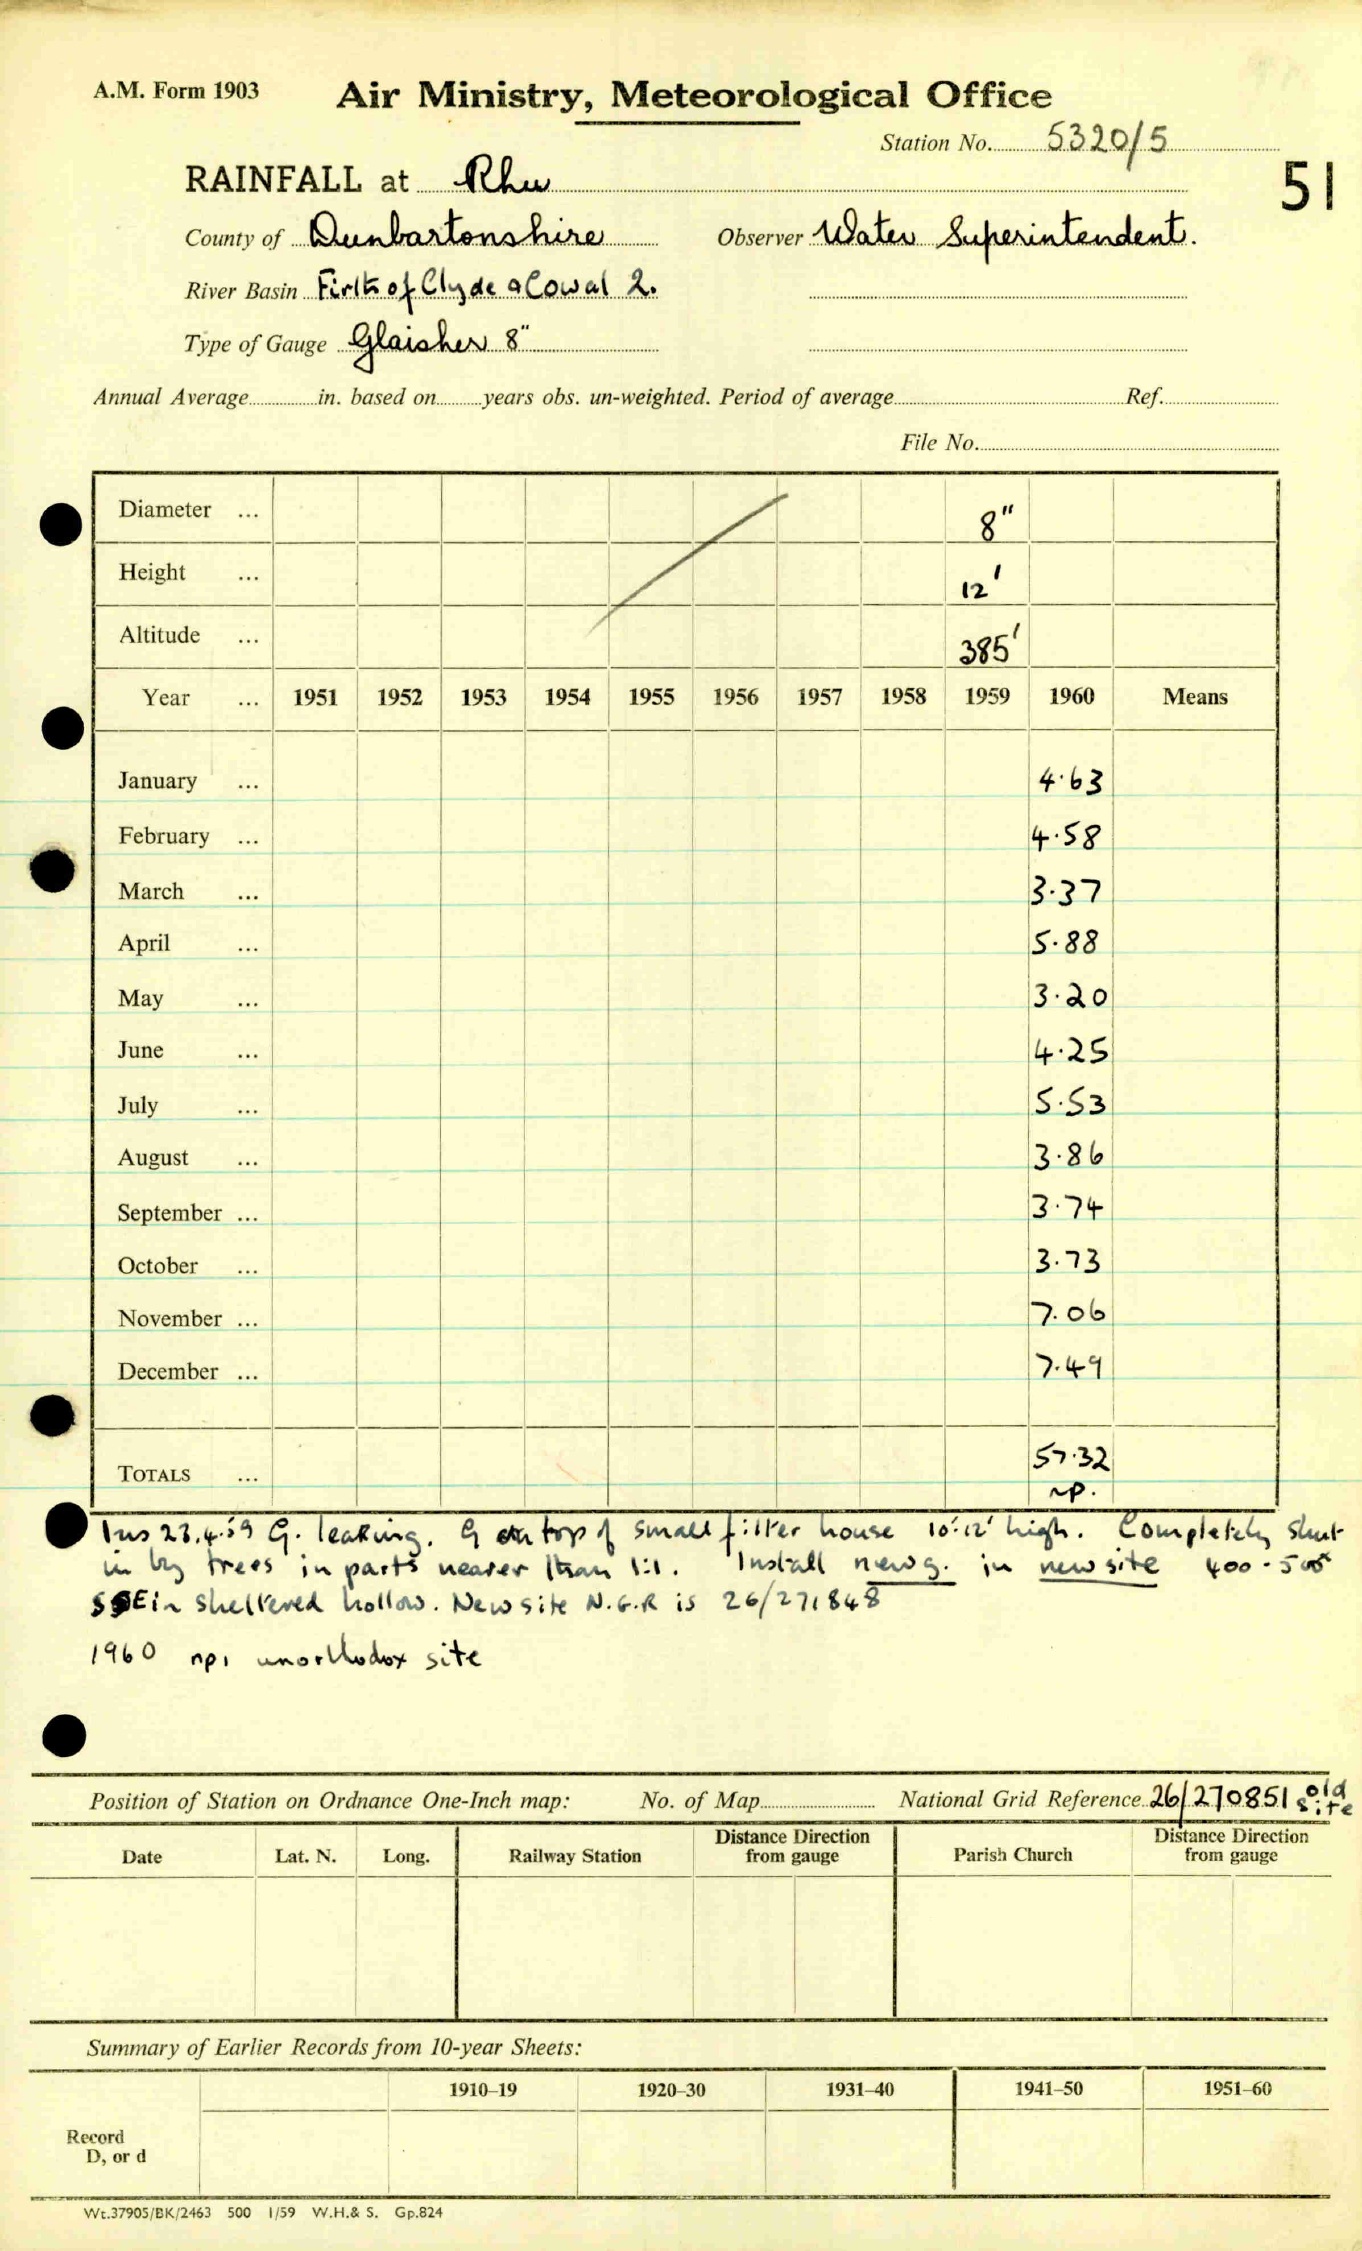 A.M. Form 1903
Air Ministry, Meteorological Office
Station No. 5320/5
RAINFALL at Rhu
51
County of Dunbartonshire Observer Water Superintendent.
River Basin Firth of Clyde & Cowal 2.
Type of Gauge Glaisher 8"
Annual Average in. based on years obs. un-weighted. Period of average Ref.
File No.
Diameter ... 8"
Height ... 12'
Altitude ... 385'
Year ... 1951 1952 1953 1954 1955 1956 1957 1958 1959 1960 Means
January ... 4.63
February ... 4.58
March ... 3.37
April ... 5.88
May ... 3.20
June ... 4.25
July ... 5.53
August ... 3.86
September ... 3.74
October ... 3.73
November ... 7.06
December ... 7.49
TOTALS ... 57.32
np.
Ins 23.4.59 G. leaking. G on top of small filter house 10'-12' high. Completely shut
in by trees in parts nearer than 1:1. Install new g. in new site 400-500x
SSE in sheltered hollow. New site N.G.R is 26/271848
1960 np, unorthodox site
Position of Station on Ordnance One-Inch map: No. of Map National Grid Reference 26/270851 old site
Date Lat. N. Long. Railway Station Distance Direction from gauge Parish Church Distance Direction from gauge
Summary of Earlier Records from 10-year Sheets:
1910-19 1920-30 1931-40 1941-50 1951-60
Record
D, or d
Wt.37905/BK/2463 500 1/59 W.H.& S. Gp.824